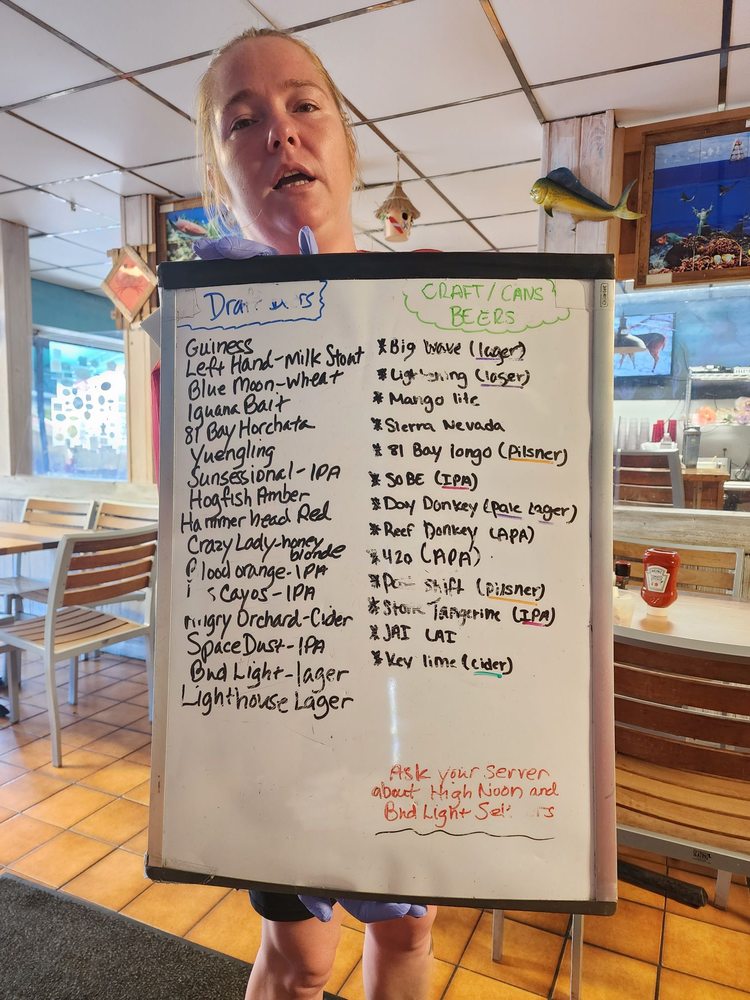 CRAFT/CANS
BEERS
Guiness
Left Hand-Milk Stout
Blue Moon-Wheat
Iguana Bait
81 Bay Horchata
Yuengling
Sunsessional-IPA
Hogfish Amber
Hammerhead Red
Crazy Lady-honey
blonde
lood orange-IPA
Cayos-IPA
ngry Orchard-Cider
Space Dust-IPA
Bud Light-lager
Lighthouse Lager
*Big Wave (lager)
*Lightening (laser)
*Mango lite
*Sierra Nevada
*81 Bay longo (Pilsner)
*SOBE (IPA)
*Day Donkey (pale Lager)
*Reef Donkey (APA)
*420 (APA)
* shift (Pilsner)
*Stone Tangerine (IPA)
*JAI LAI
*Key lime (cider)
Ask your server
about High Noon and
Bud Light
HEINZ